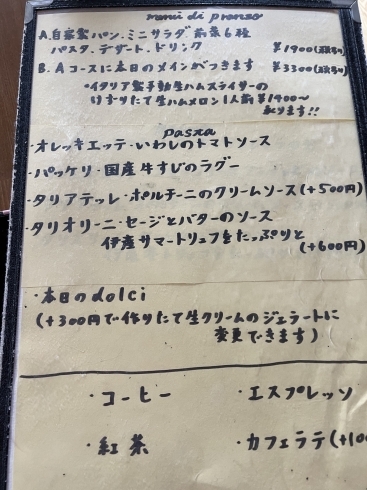 menù di pranzo
A.自家製パン.ミニサラダ 前菜6種
パスタ.デザート.ドリンク ¥1900(税込)
B.Aコースに本日のメインがつきます ¥3300(税込)
・イタリア製手動生ハムスライサーの
けずりたて生ハムメロン1人前¥1400〜
あります!!
pasta
・オレッキエッテ・いわしのトマトソース
・パッケリ・国産牛すじのラグー
・タリアテッレ・ポルチーニのクリームソース(+500円)
・タリオリーニ・セージとバターのソース
伊産サマートリュフをたっぷりと
(+600円)
・本日のdolci
(+300円で作りたて生クリームのジェラートに
変更できます)
・コーヒー ・エスプレッソ
・紅茶 ・カフェラテ(+100